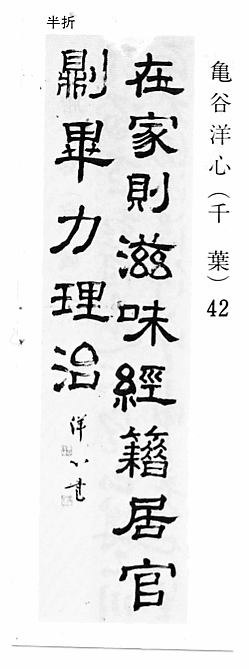 半折
亀谷洋心（千葉）42
在家則滋味經籍居官
則畢力理治
洋心書